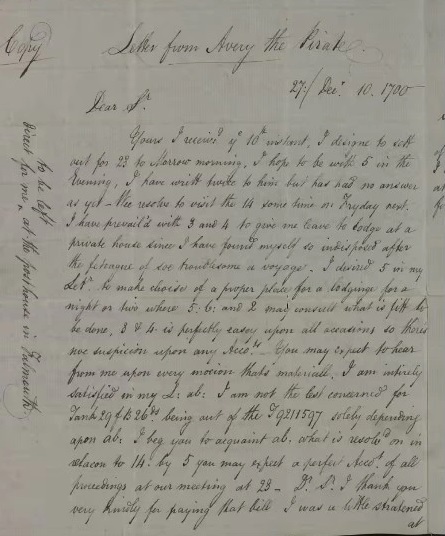 Copy
Letter from Avery the Pirate.
27:/ Decr. 10. 1700
Dear Sr.
Yours I receivd ye 10th instant, I designe to sett
out for 23 to Morrow morning, I hope to be with 5 in the
Evening, I have writt twice to him but has had no answer
as yet - We resolve to visit the 14 some time on Fryday next.
I have prevail'd with 3 and 4 to give me leave to Lodge at a
private house since I have found myself so indisposed after
the fatigue of soe troublesome a voyage. I desired 5 in my
Letr. to make choise of a proper place for a lodginge for a
night or two where 5: 6: and 2 may consult what is fitt to
be done, 3 & 4 is perfectly easey upon all occasions so theres
noe suspicion upon any Acct. - You may expect to hear
from me upon every mocion thats materiall. I am intirely
satisfied in my L: ab: I am not the lest concerned for
Tank 29 f B26 being out of the T9211597 solely depending
upon ab: I beg you to acquaint ab. what is resold on in
relacon to 14: by 5 you may expect a perfect Acct. of all
proceedings at our meeting at 23 - Dr. Sr. I thank you
very kindly for paying that bill I was a little straitened
at
to be left
direct for me at the posthouse in Falmouth